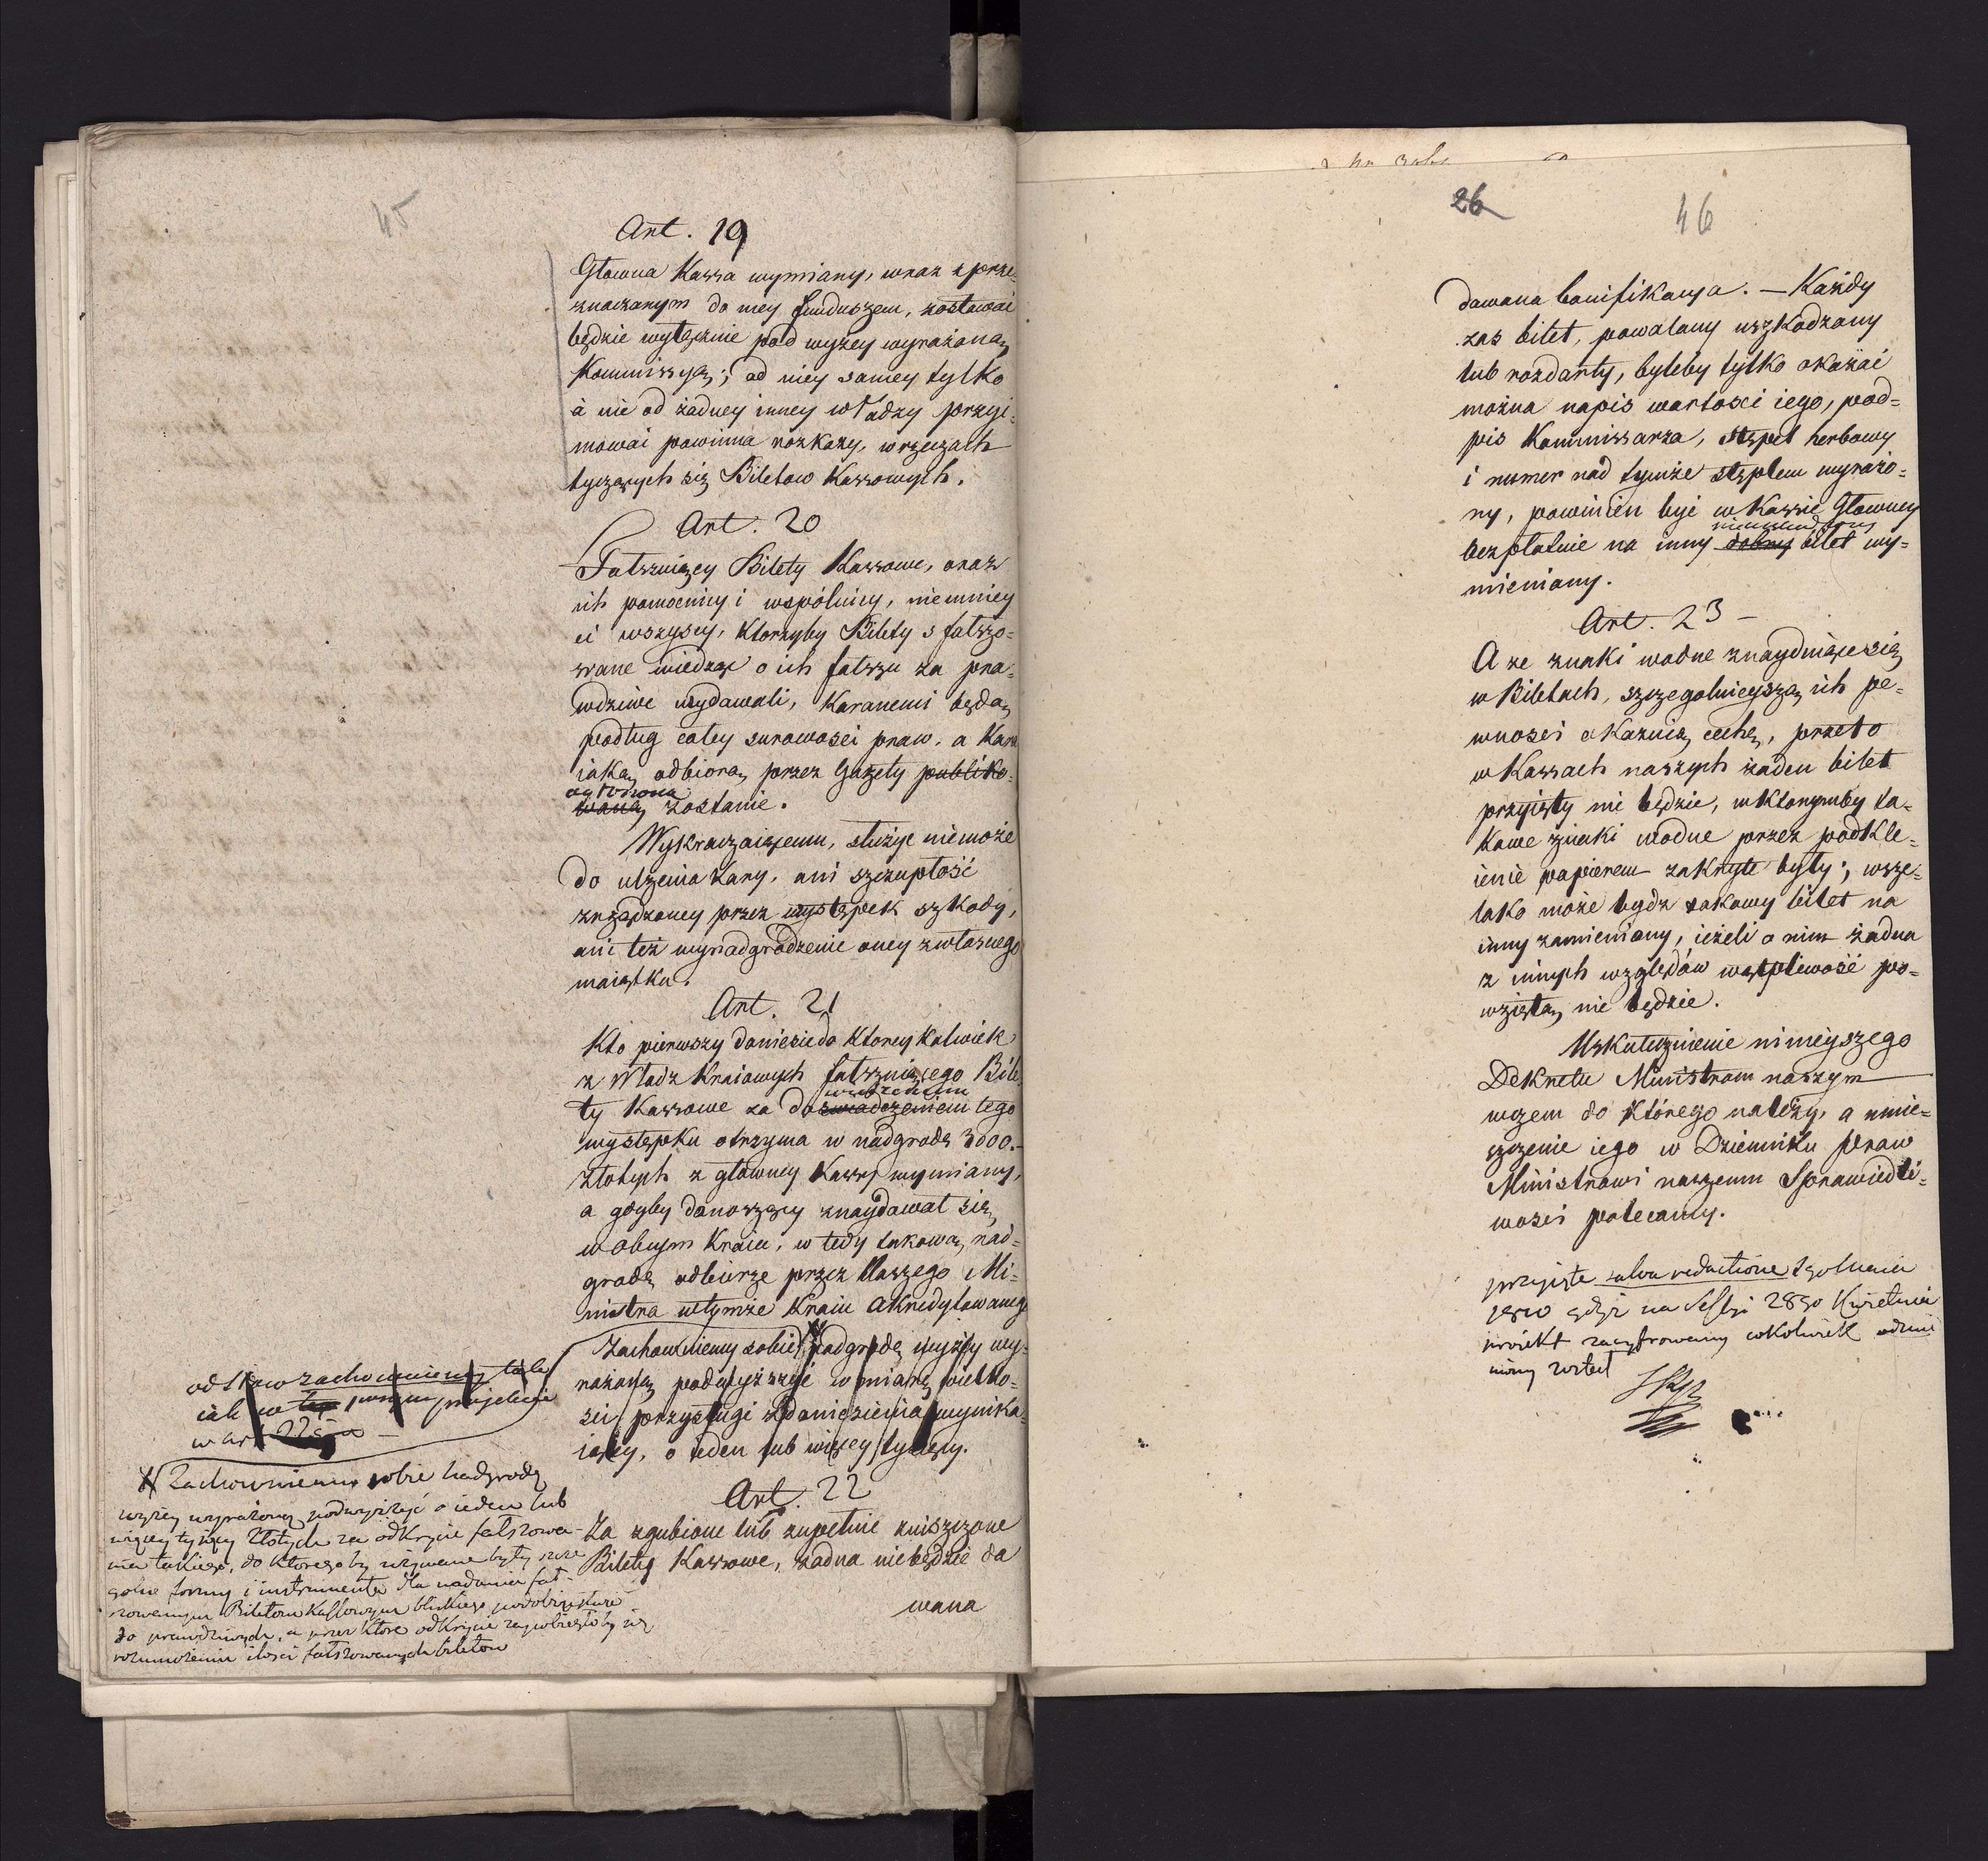 45
Art. 19
Głowna Kassa wymiany, wraz z prze-
znaczonym do niey funduszem, zostawać
będzie wyłącznie pod wyżey wyrażoną
Kommissyą; od niey samey tylko
à nie od żadney inney władzy przyi-
mować powinna rozkazy, w rzeczach
tyczących się Biletow Kassowych.
Art. 20
Fałszuiący Bilety Kassowe, oraz
ich pomocnicy i wspólnicy, niemniey
ci wszyscy, ktorzyby Bilety sfałszo-
wane wiedząc o ich fałszu za pra-
wdziwe wydawali, karanemi będą
podług całey surowości praw, a karę
iaką odbiorą przez Gazety publiko-
ogłoszona
waną zostanie.
Wykraczaiącemu, służyc niemoże
do ulżenia kary, ani szczupłość
zrządzoney przez występek szkody,
ani też wynadgrodzenie oney z własnego
maiątku.
Art. 21
Kto pierwszy doniesie do ktorey kolwiek
z Władz Kraiowych fałszuiącego Bile
ty Kassowe za doświadczeniem tego
występku otrzyma w nadgrodę 3000.-
Złotych z głowney Kassy wymiany,
a gdyby donoszący znaydował się
w obcym Kraiu, w tedy takową nad-
grodę odbierze przez Naszego Mi-
nistra w tymże Kraiu akredytowanego
Zachowuiemy sobie nadgrodę wyżey wy-
rażoną podwyższyć w miarę wielko-
ści przysługi z doniesienia wynika-
iącey, o ieden lub więcey tysięcy.
od słow zachowuiemy
w art 22
# Zachowuiemy sobie nadgrodę
wyżey wyrażoną podwyższyć o ieden lub
więcey tysięcy Złotych za odkrycie fałszowa-
nia takiego, do ktorego by używane były szcze
golne formy i instrumenta dla nadania fał-
szowanym Biletom Kassowym bliskiego podobieństwa
do prawdziwych, a przez ktore odkrycie zapobiegłoby się
rozmnożeniu ilości fałszowanych biletow
Art. 22
Za zgubione lub zupełnie zniszczone
Bilety Kassowe, żadna niebędzie da
wana
26
46
dawana bonifikacya. — Każdy
zas bilet, powalany uszkodzony
lub rozdarty, byleby tylko okazać
można napis wartości iego, pod-
pis Kommissarza, stępel herbowy
i numer nad tymże stęplem wyrażo-
ny, powinien być w Kassie Głowney
nieuszkodzony
bezpłatnie na inny dobry bilet wy-
mieniany.
Art. 23 -
A ze znaki wodne znayduiące się
w Biletach, szczegolnieyszą ich pe-
wności okazuią cechę, przeto
w Kassach naszych żaden bilet
przyięty nie będzie, w ktorymby ta-
kowe znaki wodne przez podkle-
ienie papierem zakryte były; wsze-
lako może bydz takowy bilet na
inny zamieniany, ieżeli o nim żadna
z innych względów wątpliwość po-
wziętą nie będzie.
Uskutecznienie ninieyszego
Dekretu Ministrom naszym
wczem do którego należy, a umie-
szczenie iego w Dzienniku praw
Ministrowi naszemu Sprawiedli-
wości polecamy.
przyięte salva redactione
1810 gdyż na Sessyi 28go Kwietnia
proiekt cokolwiek odmie
niony został